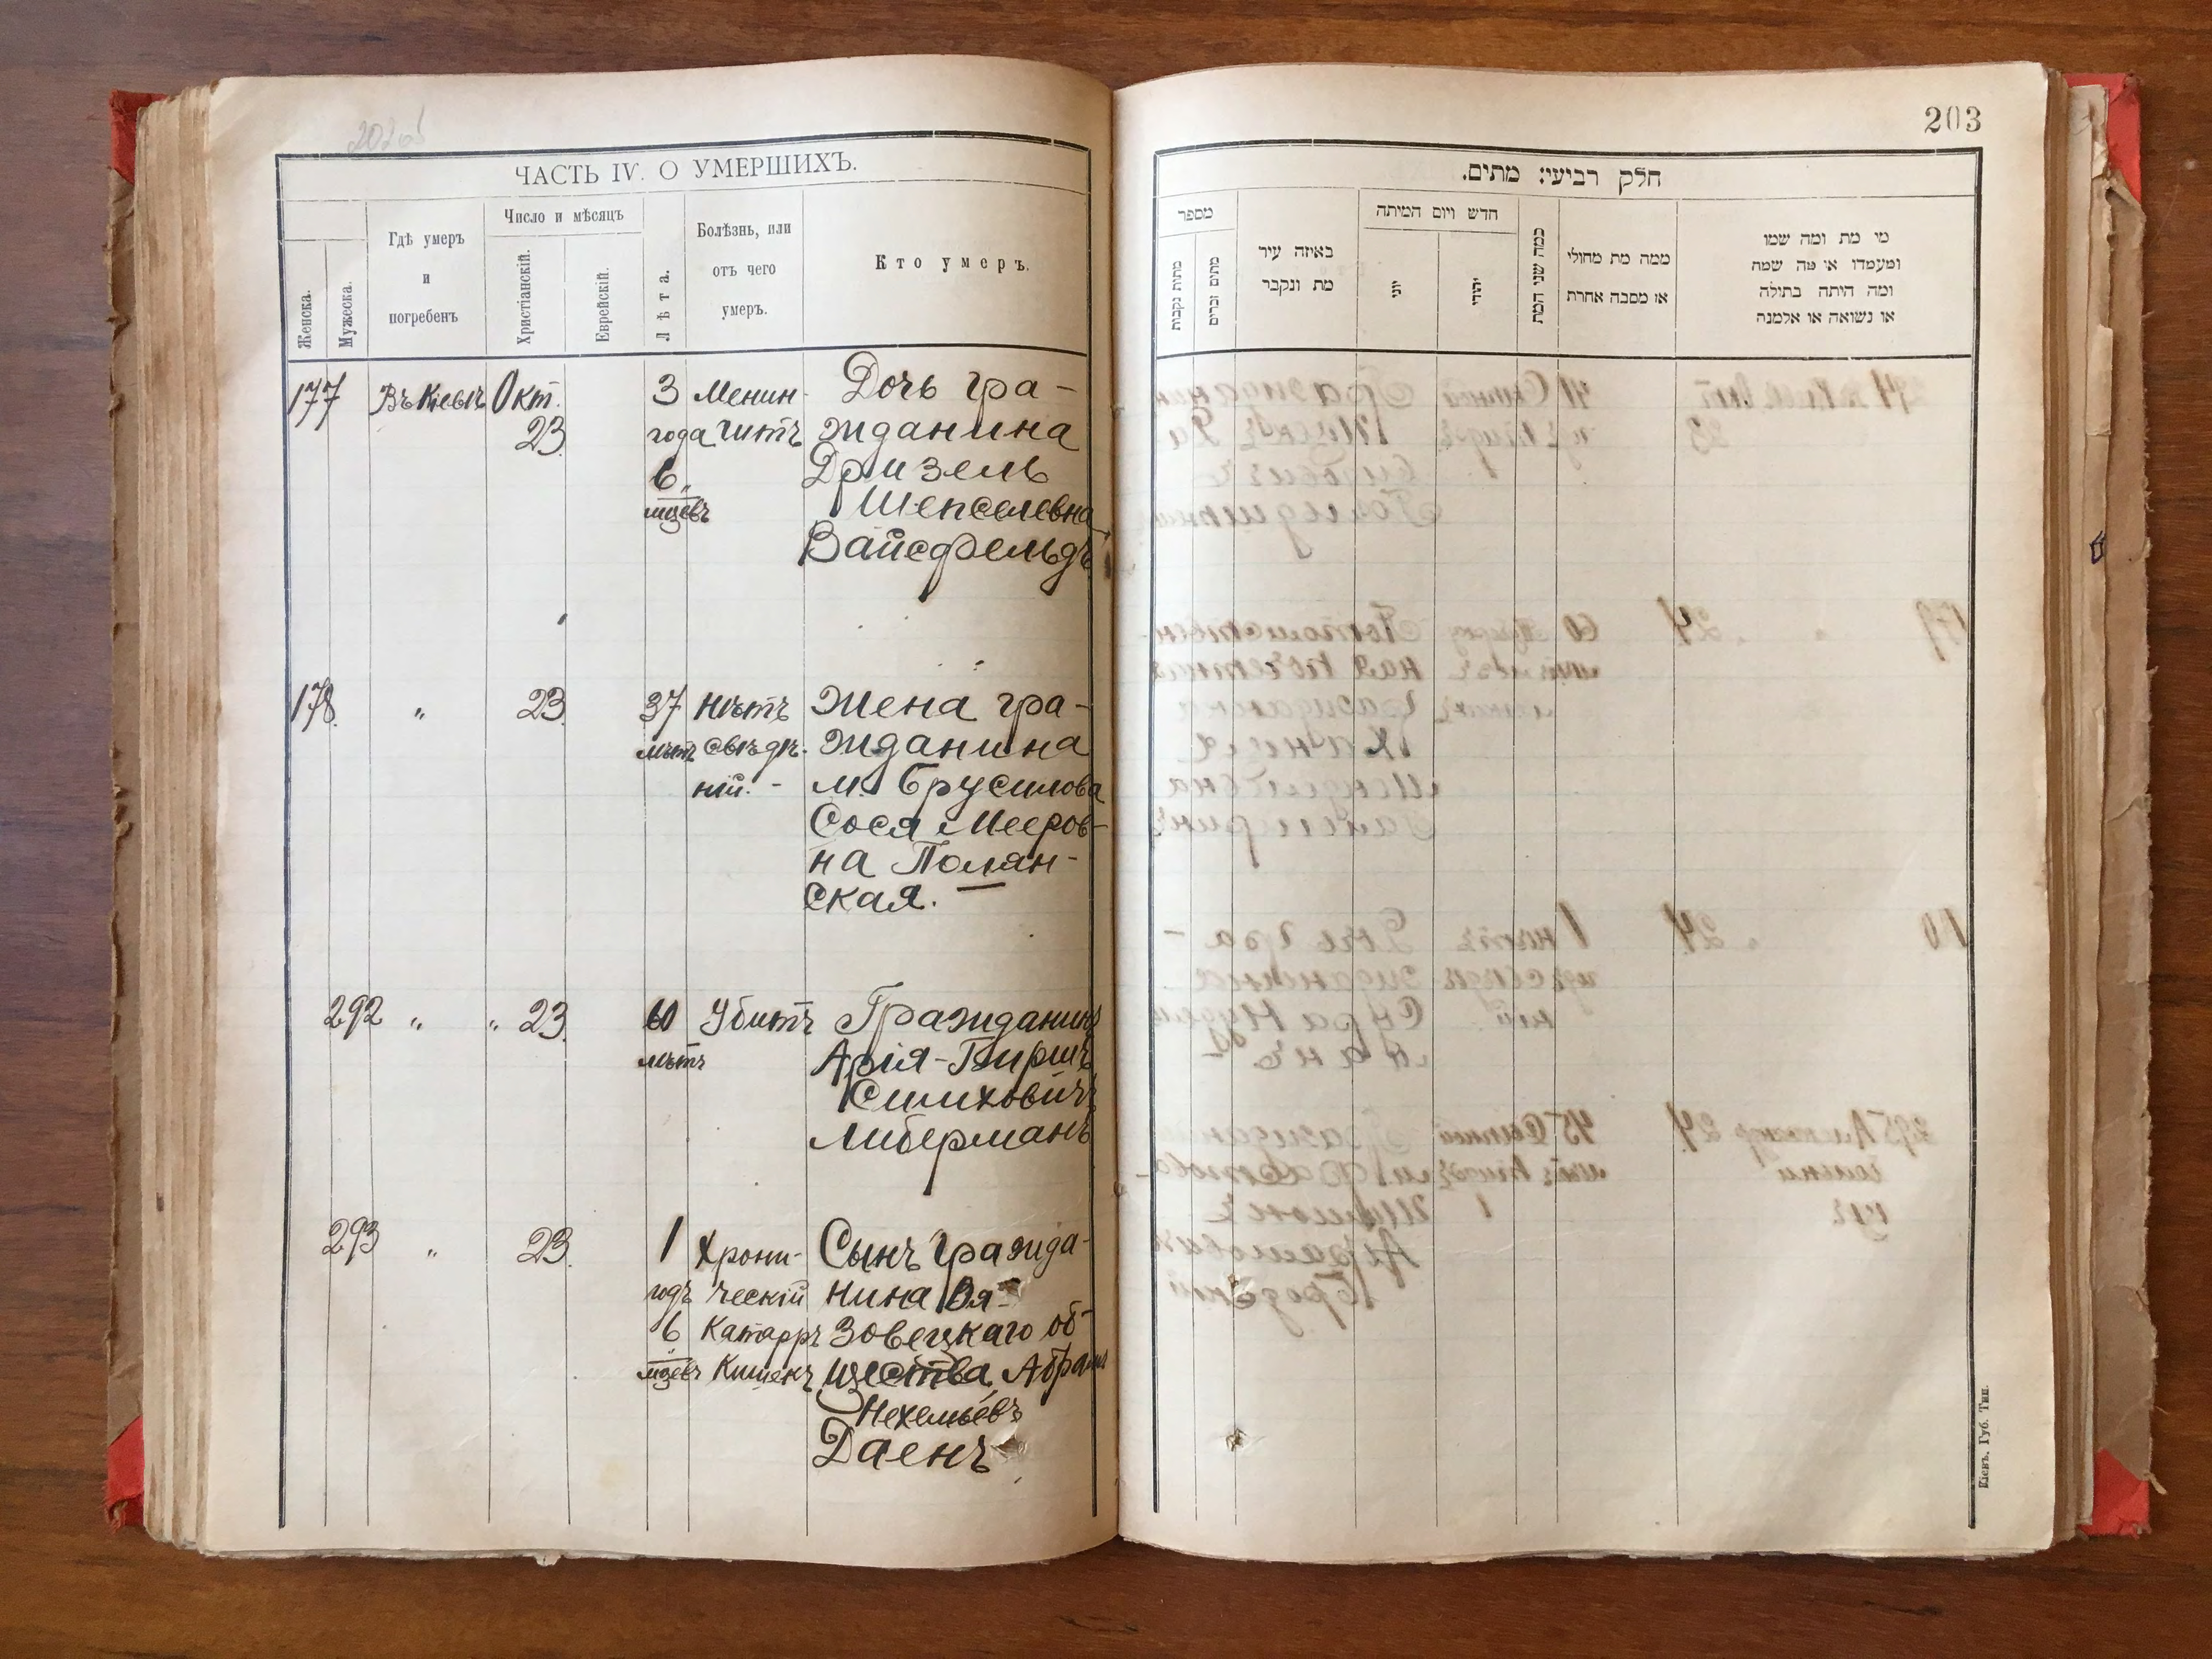 203
ЧАСТЬ IV. О УМЕРШИХЪ.
Женска.
Мужеска.
Гдѣ умеръ
и
погребенъ
Число и мѣсяцъ
Христіанскій.
Еврейскій.
Лѣта.
Болѣзнь, или
отъ чего
умеръ.
Кто умеръ.
177 Въ Кіевѣ Окт. 3 Менин- Дочь гра-
23 года гитъ жданина
6 Дризель
мцѣвъ Шепселевна
Вайсфельдъ
178. " 23. 37 Нѣтъ Жена гра-
лѣтъ свѣдѣ- жданина
ній. - м. Брусилова
Сося Мееров-
на Полян-
ская. —
292 " " 23. 60 Убитъ Гражданинъ
лѣтъ Арія-Гиршъ
Симховичъ
Либерманъ
293 " 23. 1 Хрони- Сынъ гражда-
годъ ческій нина Вя-
6 Катарръ зовецкаго об-
мцѣвъ Кишекъ щества Абрамъ
Нехемьевъ
Даенъ
חלק רביעי: מתים.
מספר
מתות נקבות
מתים זכרים
באיזה עיר
מת ונקבר
חדש ויום המיתה
יוני
יהודי
כמה שני המת
ממה מת מחולי
או מסבה אחרת
מי מת ומה שמו
ומעמדו או מה שמה
ומה היתה בתולה
או נשואה או אלמנה
Кіевъ. Губ. Тип.